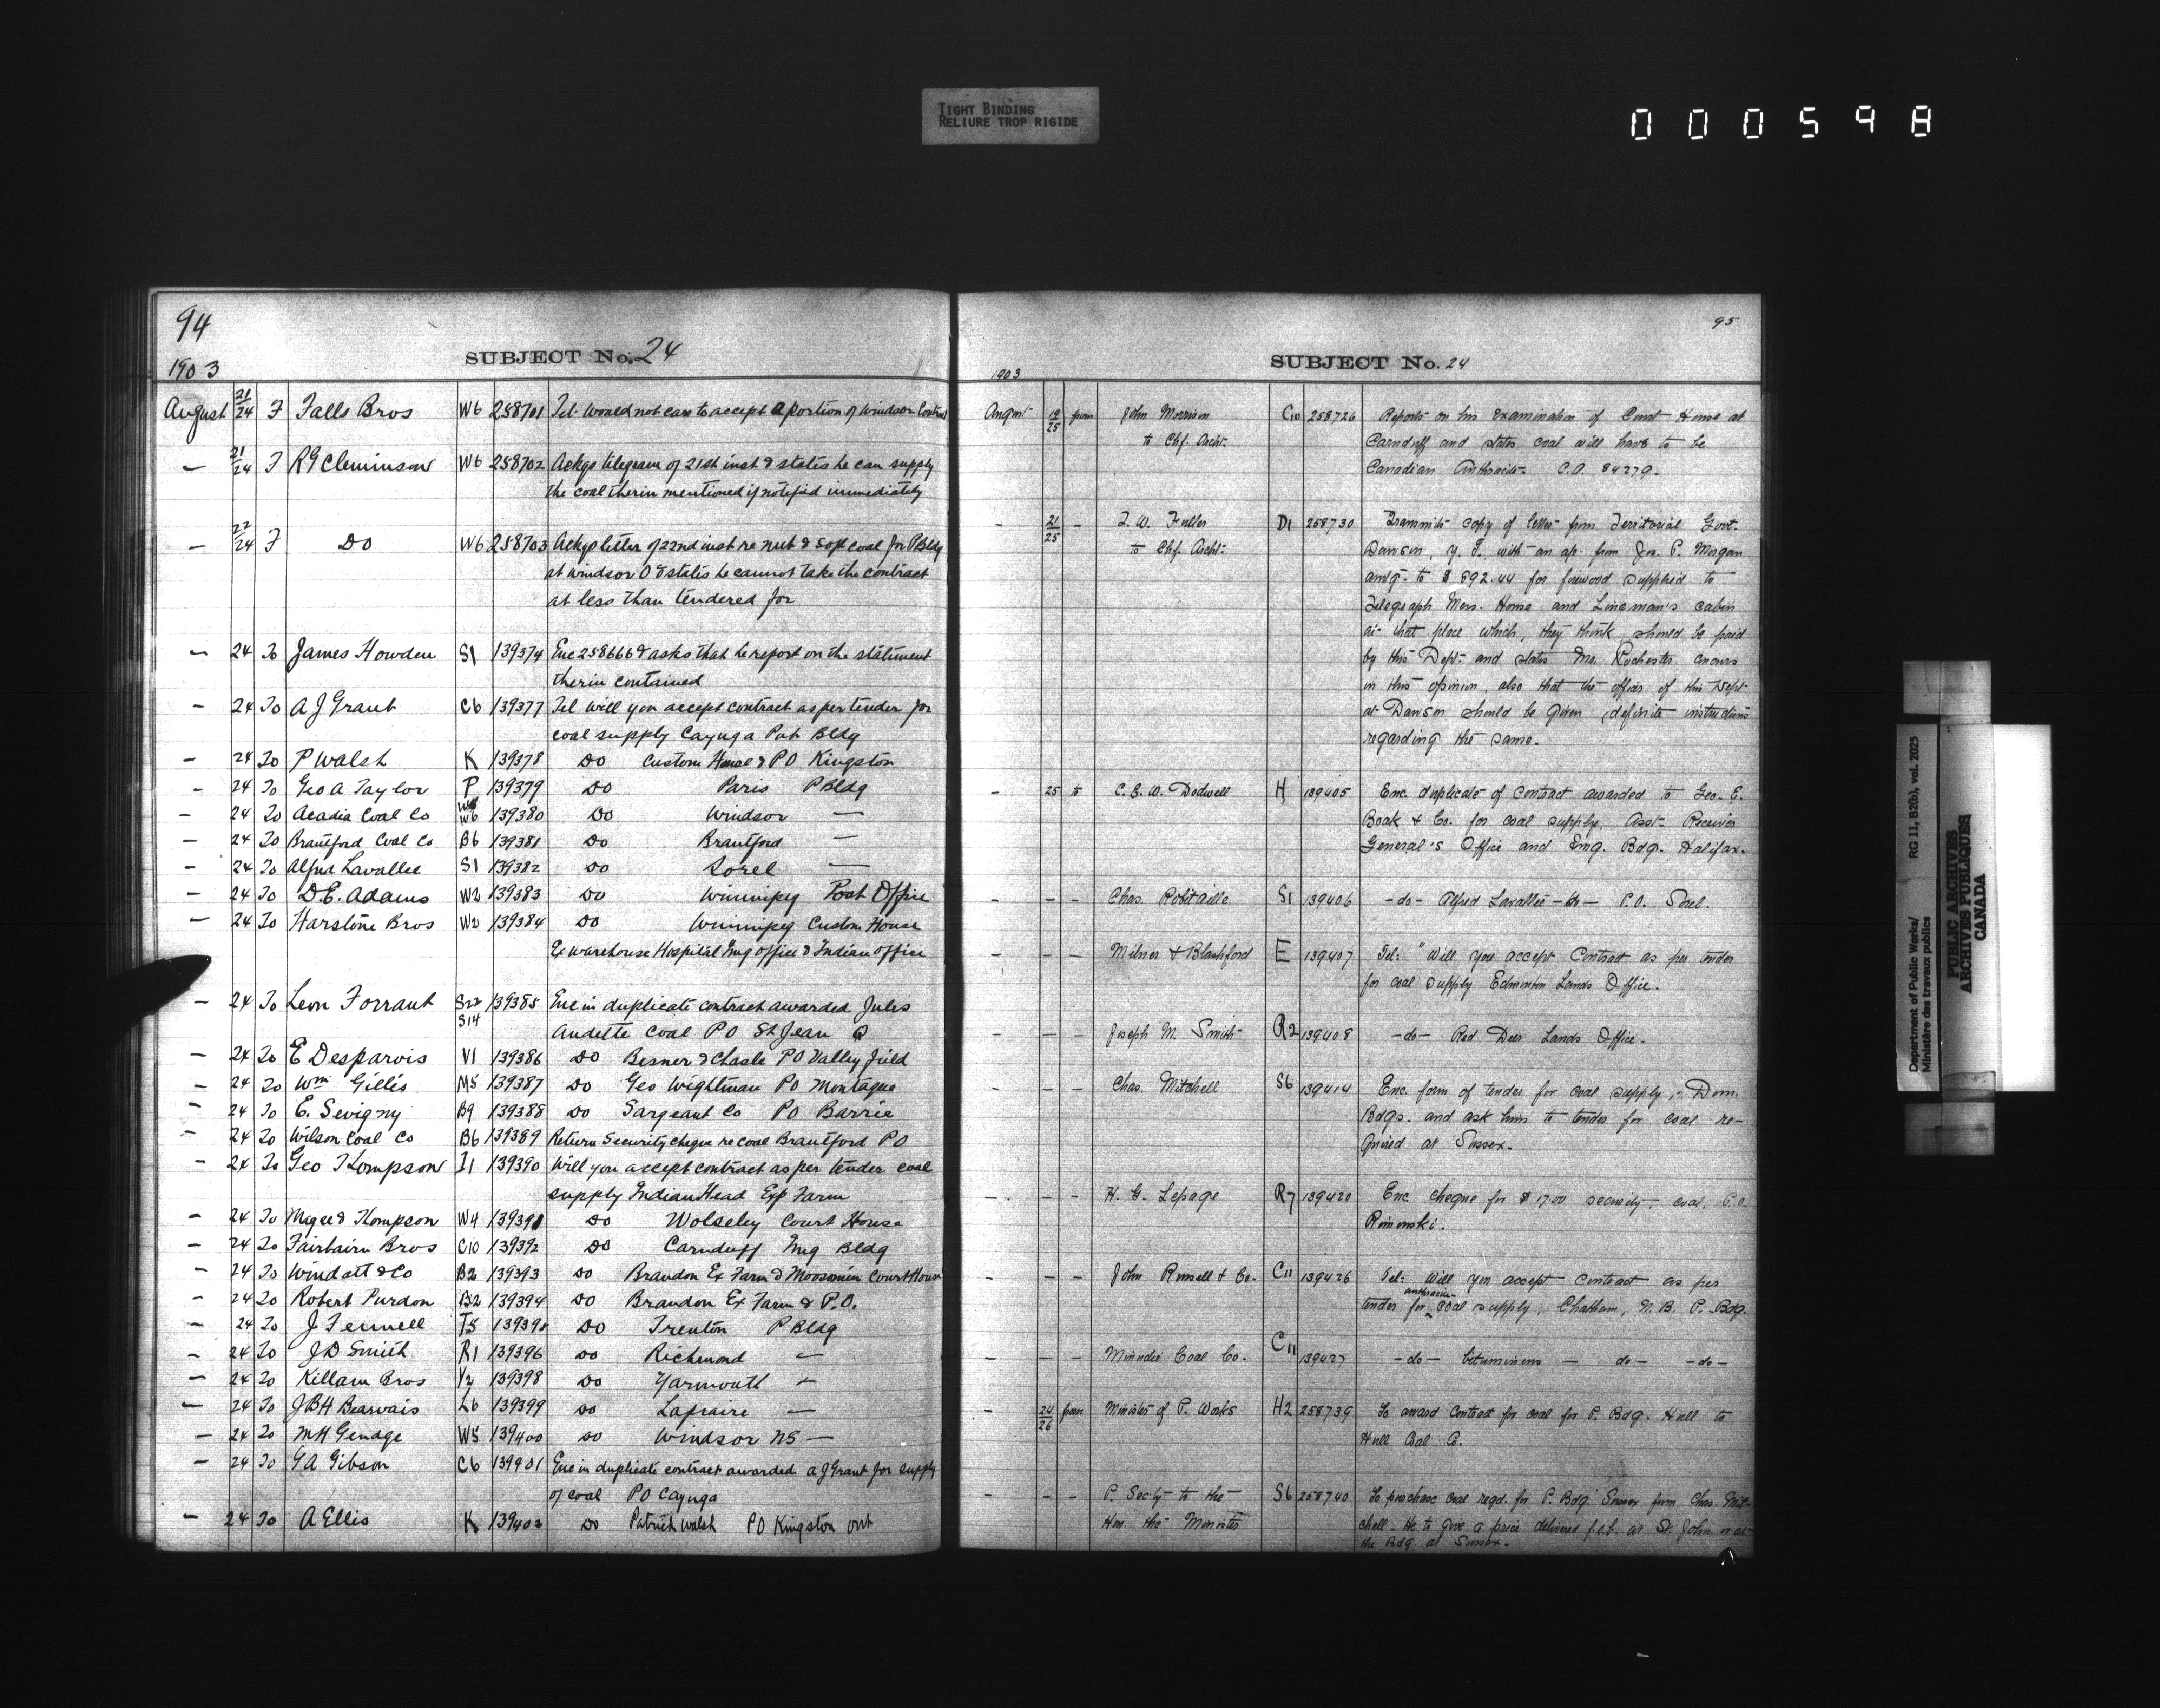 TIGHT BINDING
RELIURE TROP RIGIDE
000598
94
SUBJECT No. 24
1903
August 21/24 F Falls Bros W6 258701 Tel. Would not care to accept a portion of Windsor Contract
— 21/24 F RG Cleminson W6 258702 Ackgs telegram of 21st inst & states he can supply
the coal therin mentioned if notifid immediately
— 22/24 F DO W6 258703 Ackgs letter of 22nd inst re nut & soft coal for PBldg
at Windsor O & states he cannot take the contract
at less than tendered for
— 24 To James Howden S1 139374 Enc 258666 & asks that he report on the statement
therin contained
— 24 To A J Grant C6 139377 Tel will you accept contract as per tender for
coal supply Cayuga Pub Bldg
— 24 To P Walsh K 139378 DO Custom House & PO Kingston
— 24 To Geo A Taylor P 139379 DO Paris PBldg
— 24 To Acadia Coal Co W6 139380 DO Windsor —
— 24 To Brantford Coal Co B6 139381 DO Brantford —
— 24 To Alfred Lavallee S1 139382 DO Sorel —
— 24 To D.E. Adams W2 139383 DO Winnipeg Post Office
— 24 To Harstone Bros W2 139384 DO Winnipeg Custom House
Ex warehouse Hospital Img office & Indian office
— 24 To Leon Forrant S22 S14 139385 Enc in duplicate contract awarded Jules
Audette Coal PO St Jean Q
— 24 To E Desparois V1 139386 DO Besner & Chasle PO Valleyfield
— 24 To Wm Gillis M5 139387 DO Geo Wightman PO Montague
— 24 To E. Sevigny B9 139388 DO Sargeant Co PO Barrie
— 24 To Wilson Coal Co B6 139389 Return Security cheque re coal Brantford PO
— 24 To Geo Thompson I1 139390 Will you accept contract as per tender coal
supply Indian Head Exp Farm
— 24 To Magee & Thompson W4 139391 DO Wolseley Court House
— 24 To Fairbairn Bros C10 139392 DO Carnduff Img Bldg
— 24 To Windatt & Co B2 139393 DO Brandon Ex Farm & Moosomin Court House
— 24 To Robert Purdon B2 139394 DO Brandon Ex Farm & P.O.
— 24 To J Fennell T5 139395 DO Trenton PBldg
— 24 To J D Smith R1 139396 DO Richmond —
— 24 To Killam Bros Y2 139398 DO Yarmouth —
— 24 To JBH Bearvais L6 139399 DO Lapraire —
— 24 To M H Gendge W5 139400 DO Windsor NS —
— 24 To G A Gibson C6 139401 Enc in duplicate contract awarded A J Grant for supply
of coal PO Cayuga
— 24 To A Ellis K 139402 DO Patrick Walsh PO Kingston Ont
95
SUBJECT No. 24
1903
August 19/25 from John Morrison C10 258726 Reports on his examination of Court House at
to Chf. Archt. Carnduff and states coal will have to be
Canadian Anthracite. C.A. 84279.
- 21/25 - T. W. Fuller D1 258730 Transmits copy of letter from Territorial Govt.
to Chf. Archt. Dawson, Y.T. with an ap. from Jos. P. Morgan
amtg. to $892.44 for firewood supplied to
Telegraph Mess. House and Lineman's cabin
at that place which, they think should be paid
by this Dept. and states Mr. Rochester concurs
in this opinion, also that the officer of this Dept.
at Dawson should be given definite instructions
regarding the same.
- 25 to C. E. W. Dodwell H 139405 Enc. duplicate of contract awarded to Geo. E.
Boak & Co. for coal supply, Asst. Receiver
General's Office and Img. Bdg. Halifax.
- - - Chas. Robitaille S1 139406 -do- Alfred Lavallee -do- P.O. Sorel.
- - - Milner & Blashford E 139407 Tel: "Will you accept Contract as per tender
for coal supply Edmonton Lands Office.
- - - Joseph M. Smith R2 139408 -do- Red Deer Lands Office.
- - - Chas. Mitchell S6 139414 Enc. form of tender for coal supply, Dom.
Bdgs. and ask him to tender for coal re-
quired at Sussex.
- - - H. G. Lepage R7 139420 Enc. cheque for $17.00 security, coal, P.O.
Rimouski.
- - - John Russell & Co. C11 139426 Tel: Will you accept contract as per
tender for anthracite coal supply, Chatham, N.B. P. Bdg.
- - - Minudie Coal Co. C11 139427 -do- bituminous - do- -do-
- 24/26 from Minister of P. Works H2 258739 To award contract for coal for P. Bdg. Hull to
Hull Coal Co.
- - - P. Secty to the S6 258740 To purchase coal reqd. for P. Bdg. Sussex from Chas. Mit-
Hon. the Minister chell. He to give a price delivered f.o.b. at St. John or at
the Bdg. at Sussex.
Department of Public Works/
Ministère des travaux publics
RG 11, B2(b), vol. 2025
PUBLIC ARCHIVES
ARCHIVES PUBLIQUES
CANADA